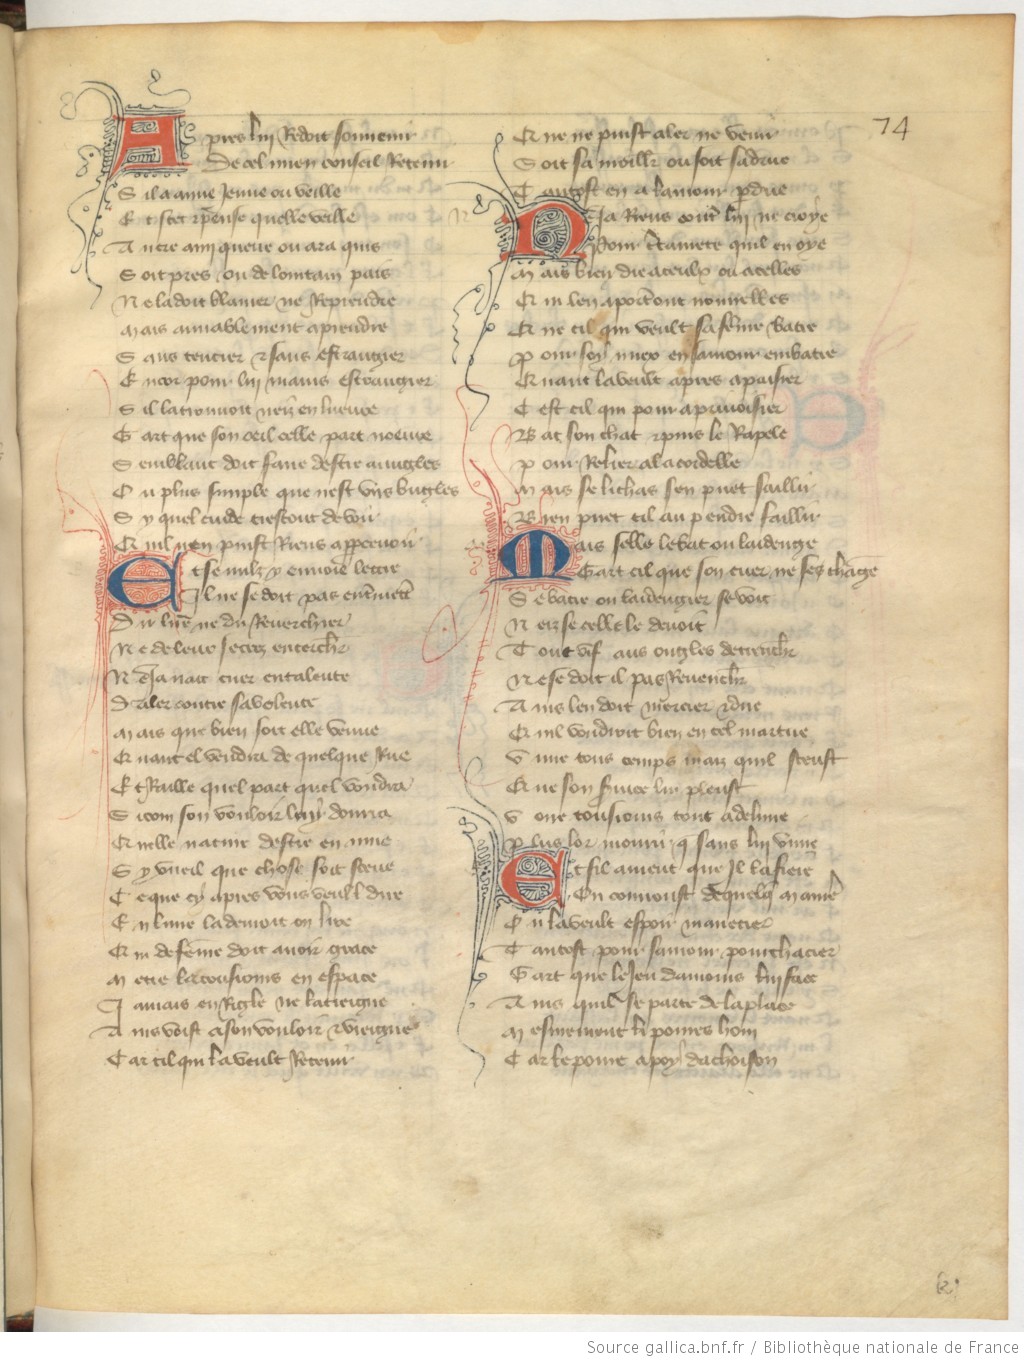 74
Apres lui Redoit souuenir
De cel mien conseil Retenir
S il a amie Jeune ou veille
E t scet et pense quelle veille
A utre ami querre ou a ia quis
S oit pres ou de lointain pais
N e la doit blamer ne Reprendre
M ais amiablement aprendre
S ans tencier et sans estrangier
E ncor pour lui mains estrangier
S il la trouuoit neiz en lueure
G art que son oeil celle part noeuure
S emblant doit faire destre auugles
O u plus simple que nest vns bugles
S y quel cuide trestout de voir
Q uil nen puist Riens apperceuoir
Et se nulz y enuoie lettre
Il ne se doit pas entremettre
D u lire ne du Reuerchier
N e de leur secrez encerchier
N e Ja nait cuer entalente
D aler contre sa volente
M ais que bien soit elle venue
Q uant el vendra de quelque Rue
E t Raille quel part quel voudra
S icom son vouloir luy donra
Q uelle na cure destre en mue
S y vueil que chose soit sceue
C e que cy apres vous veul dire
E n liure la deuroit on lire
Q ui de feme doit auoir grace
M ete la tousiours en espace
J amais en Rigle ne la teigne
A ins voist a son vouloir et vieigne
C ar cil qui la veult Retenir
Q ue ne puist aler ne venir
S oit sa moillr ou soit sa drue
T antost en a lamour perdue
Ne Ja Riens contre lui ne croye
Pour certainete quil en oye
M ais bien die a ceulx ou a celles
Q ui len aporteront nouuelles
Q ue cil qui veult sa feme batre
P our soy miex en samour embatre
Q uant la veult apres apaisier
C est cil qui pour apriuoisier
B at son chat et puis le Rapele
P our Relier a la cordelle
M ais se li chas sen puet saillir
B ien puet cil au prendre faillir
Mais selle le bat ou laidenge
Gart cil que son cuer ne sez change
S e batre ou laidengier se voit
N eiz se celle le deuoit
T out vif aus ongles detrencher
N e se doit il pas Reuencher
A ins len doit mercier et dire
Q uil voudroit bien en cel martire
V iure tous temps maiz quil sceust
Q ue son seruice lui pleust
V oire tousiours tout a deliure
P lus lor mourir que sans lui viure
Et sil auient que Il la fiere
E n laveult espoir manecier
T antost pour samour pourchacier
G art que le Jeu damours lui face
A ins quil se parte de la place
M esmement li poures hom
C ar le poure a poy dachoison